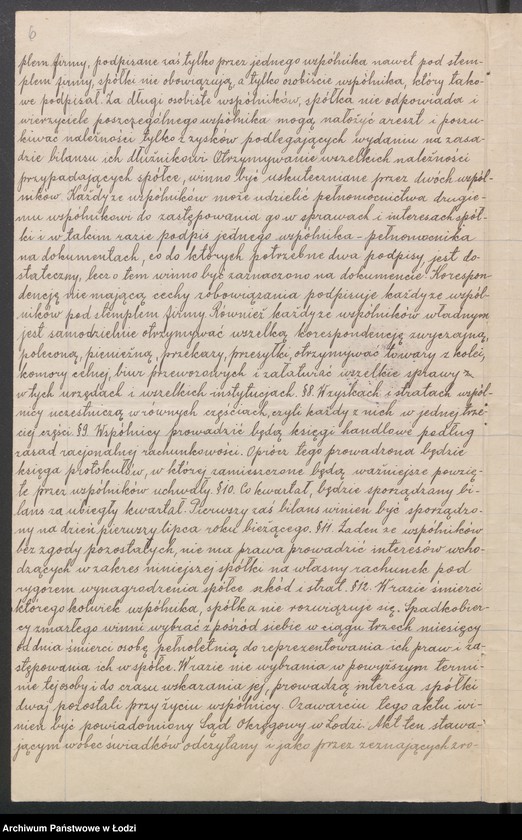 6
plem firmy, podpisane zaś tylko przez jednego wspólnika nawet pod stem-
plem firmy, spółki nie obowiązują, a tylko osobiście wspólnika, który tako-
we podpisał. Za długi osobiste wspólników, spółka nie odpowiada i
wierzyciele poszczególnego wspólnika mogą nałożyć areszt i poszu-
kiwać należności tylko z zysków podlegających wydaniu na zasa-
dzie bilansu ich dłużnikowi. Otrzymywanie wszelkich należności
przypadających spółce, winno być uskuteczniane przez dwóch wspól-
ników. Każdy ze wspólników może udzielić pełnomocnictwa drugie-
mu wspólnikowi do zastępowania go w sprawach i interesach spół-
ki i w takim razie podpis jednego wspólnika - pełnomocnika
na dokumentach, co do których potrzebne dwa podpisy, jest do-
stateczny, lecz o tem winno być zaznaczono na dokumencie. Korespon-
dencję nie mającą cechy zobowiązania podpisuje każdy ze wspól-
ników pod stemplem firmy. Również każdy ze wspólników władnym
jest samodzielnie otrzymywać wszelką korespondencję zwyczajną,
poleconą, pieniężną, przekazy, przesyłki, otrzymywać towary z kolei,
komory celnej, biur przewozowych i załatwiać wszelkie sprawy w
tych urzędach i wszelkich instytucjach. §8. W zyskach i stratach wspól-
nicy uczestniczą w równych częściach, czyli każdy z nich w jednej trze-
ciej części. §9. Wspólnicy prowadzić będą księgi handlowe podług
zasad racjonalnej rachunkowości. Oprócz tego prowadzona będzie
księga protokułów, w której zamieszczone będą ważniejsze powzię-
te przez wspólników uchwały. §10. Co kwartał, będzie sporządzany bi-
lans za ubiegły kwartał. Pierwszy zaś bilans winien być sporządzo-
ny na dzień pierwszy lipca roku bieżącego. §11. Żaden ze wspólników
bez zgody pozostałych, nie ma prawa prowadzić interesów wcho-
dzących w zakres niniejszej spółki na własny rachunek pod
rygorem wynagrodzenia spółce szkód i strat. §12. W razie śmierci
któregokolwiek wspólnika, spółka nie rozwiązuje się. Spadkobier-
cy zmarłego winni wybrać z pośród siebie w ciągu trzech miesięcy
od dnia śmierci osobę pełnoletnią do reprezentowania ich praw i za-
stępowania ich w spółce. W razie nie wybrania w powyższym termi-
nie tej osoby i do czasu wskazania jej, prowadzą interesa spółki
dwaj pozostali przy życiu wspólnicy. O zawarciu tego aktu wi-
nien być powiadomiony Sąd Okręgowy w Łodzi. Akt ten stawa-
jącym wobec świadków odczytany i jako przez zeznających zro-
Archiwum Państwowe w Łodzi